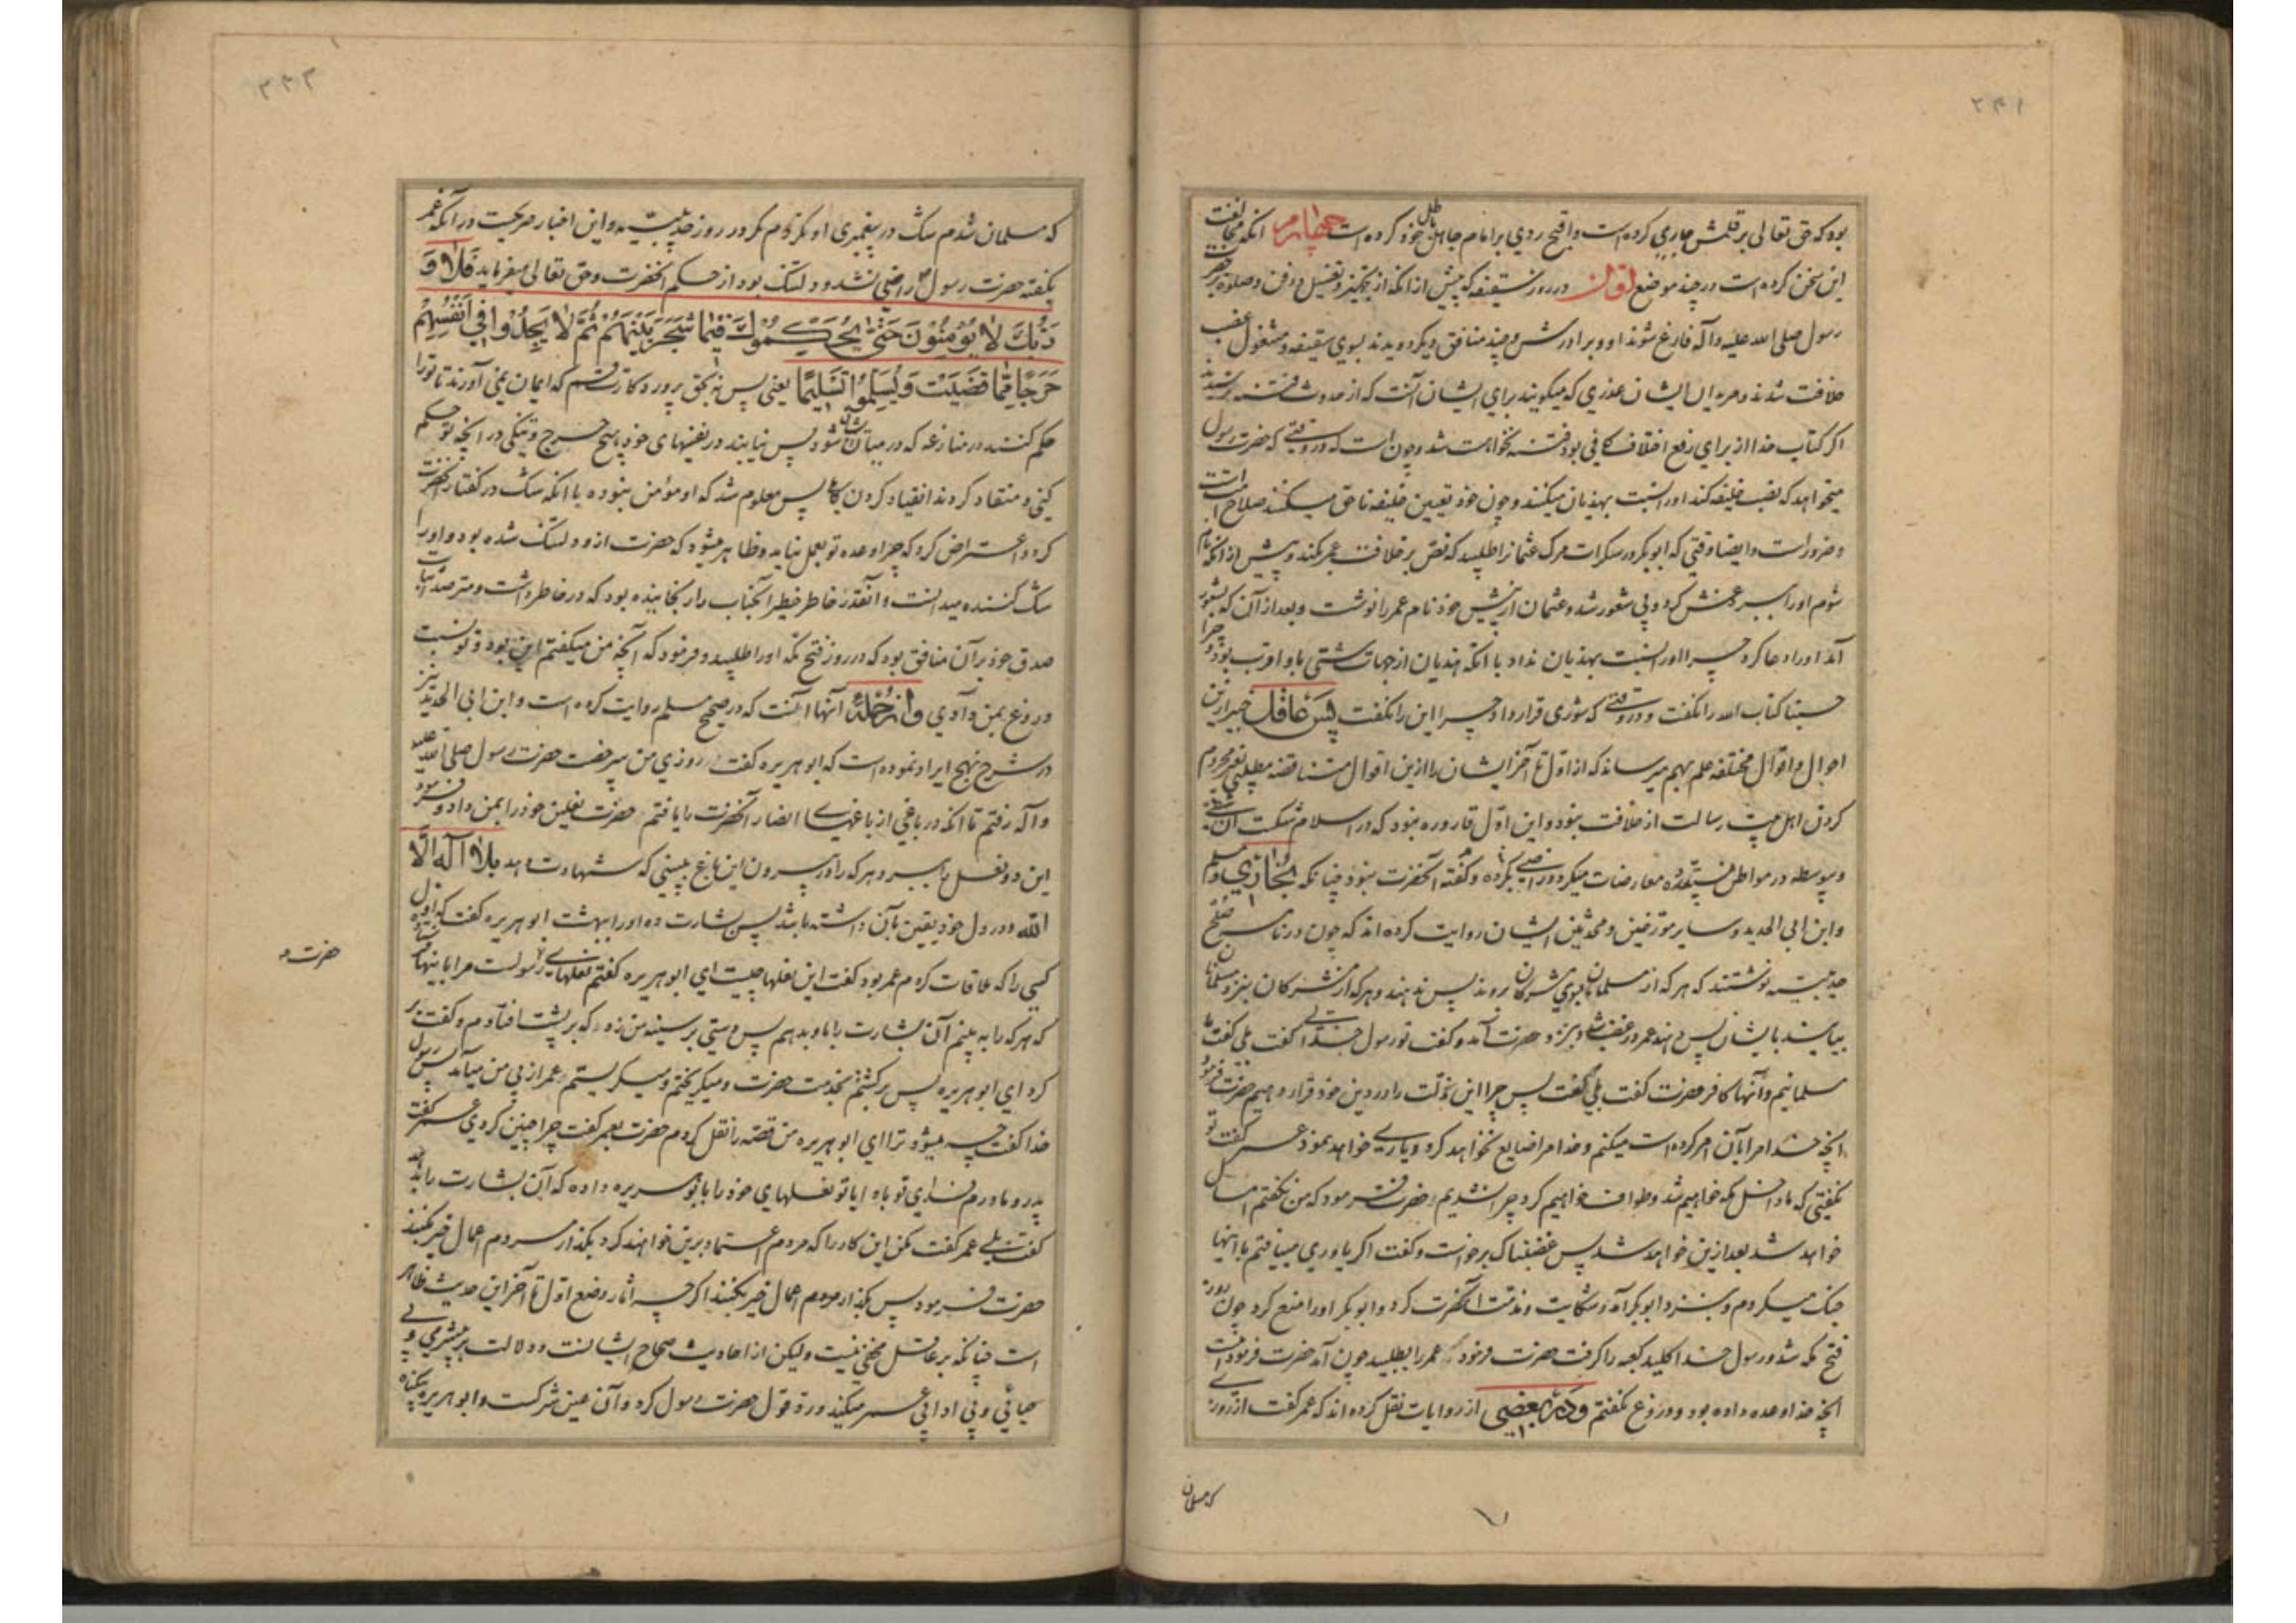 ۲۳۱
بود که حق تعالی بر قلمش جاری کرده است و اقبح ردی بر امام جاهل باطل خود کرده است چهارم انکه مخالفت
این سخن کرده است در چند موضع اول در روز سقیفه که پیش از انکه از تجهیز و تغسیل و دفن و صلوة بر حضرت
رسول صلی الله علیه و آله فارغ شوند او و برادرش و چند منافق دیگر دویدند بسوی سقیفه و مشغول غصب
خلافت شدند و مریدان ایشان عذری که میگویند برای ایشان آنست که از حدوث فتنه ترسیدند
اگر کتاب خدا از برای رفع اختلاف کافی بود فتنه نخواست شد و چون است که در وقتی که حضرت رسول
میخواهد که نصب خلیفه کند او را نسبت بهذیان میکنند و چون خود تعیین خلیفه ناحق میکنند صلاح امت است
و ضرور است و ایضا وقتی که ابوبکر در سکرات مرک عثمانرا طلبید که نص بر خلافت عمر بکند و پیش از انکه نام
شوم او را ببرد غش کرد و بی شعور شد و عثمان از پیش خود نام عمر را نوشت و بعد از آن که بشعور
آمد او را دعا کرد چرا او را نسبت بهذیان نداد با انکه هذیان از جهات شتی باو اقرب بود و چرا
حسبنا کتاب الله را نکفت و در وقتی که شوری قرار داد چرا این را نکفت پس عاقل خبیر از این
احوال و اقوال مختلفه علم بهم میرساند که از اول تا آخر ایشان را ازین اقوال متناقضه مطلبی بغیر محروم
کردن اهل بیت رسالت از خلافت نبود و این اول قاروره نبود که در اسلام شکست
و پیوسته در مواطن متعدده معارضات میکرد و راضی بکرده و کفته آنحضرت نبود چنانکه بخاری و مسلم
و ابن ابی الحدید و سایر مورخین و محدثین ایشان روایت کرده اند که چون در نامه صلح
حدیبیه نوشتند که هر که از مسلمانان بسوی مشرکان روند پس ندهند و هر که از مشرکان بنزد مسلمانان
بیایند بایشان پس دهند عمر در غضب شد و بنزد حضرت آمد و کفت تو رسول خدائی کفت بلی کفت ما
مسلمانیم و آنها کافر حضرت کفت بلی کفت پس چرا این مذلت را در دین خود قرار دهیم حضرت فرمود
انچه خدا مرا بآن امر کرده است میکنم و خدا مرا ضایع نخواهد کرد و یاری خواهد نمود عمر کفت تو
نکفتی که ما داخل مکه خواهیم شد و طواف خواهیم کرد چرا نشدیم حضرت فرمود که من نکفتم امسال
خواهد شد بعد ازین خواهد شد پس غضبناک برخواست و کفت اگر یاوری میافتم با اینها
جنک میکردم و بنزد ابوبکر آمد و شکایت و مذمت آنحضرت کرد و ابوبکر او را منع کرد چون روز
فتح مکه شد و رسول خدا کلید کعبه را کرفت حضرت فرمود که عمر را بطلبید چون آمد حضرت فرمود اینست
انچه خدا وعده داده بود و دروغ نکفتم و در بعضی از روایات نقل کرده اند که عمر کفت از روزی
که مسلمان
۲۳۲
که مسلمان شدم شک در پیغمبری او نکردم مکر در روز حدیبیه و این اخبار صریحست در انکه عمر
بکفته حضرت رسول راضی نشد و دلتنک بود از حکم آنحضرت و حق تعالی میفرماید فلا و
ربك لا يؤمنون حتى يحكموك فيما شجر بينهم ثم لا يجدوا في انفسهم
حرجا مما قضيت ويسلموا تسليما یعنی پس نه بحق پروردکارت قسم که ایمان نمی آورند تا تو را
حکم کنند در منازعه که در میان ایشان شود پس نیابند در نفسهای خود هیچ حرج و تنکی در انچه تو حکم
کنی و منقاد کردند انقیاد کردنی کامل پس معلوم شد که او مؤمن نبوده با انکه شک در کفتار آنحضرت
کرد و اعتراض کرد که چرا وعده تو بعمل نیاید و ظاهر میشود که حضرت ازو دلتنک شده بود و او را
شک کننده میدانست و آنقدر خاطر خطیر آنجناب را رنجانیده بود که در خاطر داشت و مترصد اثبات
صدق خود بر آن منافق بود که در روز فتح مکه او را طلبید و فرمود که آنچه من میکفتم این بود و تو نسبت
دروغ بمن دادی و از جمله آنها آنست که در صحیح مسلم روایت کرده است و ابن ابی الحدید نیز
در شرح نهج ایراد نموده است که ابوهریره کفت روزی من بخدمت حضرت رسول صلی الله علیه
و آله رفتم تا انکه در باغی از باغهای انصار آنحضرت را یافتم حضرت نعلین خود را بمن داد و فرمود
این دو نعل را ببر و هر که را در بیرون این باغ ببینی که شهادت دهد بلا اله الا
الله و در دل خود یقین بآن داشته باشد پس بشارت ده او را ببهشت ابوهریره کفت که اول
کسی را که ملاقات کردم عمر بود کفت این نعلها چیست ای ابوهریره کفتم نعلهای رسولست مرا باینها فرستاده
که هر که را به بینم آن بشارت را باو بدهم پس دستی بر سینه من زد که بر پشت افتادم و کفت بر
کرد ای ابوهریره پس برکشتم بخدمت حضرت و میکریختم و میکریستم و عمر از پی من میآمد پس رسول
خدا کفت چه میشود ترا ای ابوهریره من قصه را نقل کردم حضرت بعمر کفت چرا چنین کردی عمر کفت
پدر و مادرم فدای تو باد ایا تو نعلهای خود را بابوهریره داده که آن بشارت را بدهد
حضرت
کفت بلی عمر کفت مکن این کار را که مردم اعتماد برین خواهند کرد بکذار مردم اعمال خیر بکنند
حضرت فرمود پس بکذار مردم اعمال خیر بکنند اگر چه اثار وضع اول تا آخر این حدیث ظاهر
است چنانکه بر عاقل مخفی نیست و لیکن از احادیث صحاح ایشانست و دلالت بر بیشرمی و بی
حیائی و بی ادبی عمر میکند و رد قول حضرت رسول کرد و آن عین شرکست و ابوهریره بیکناه